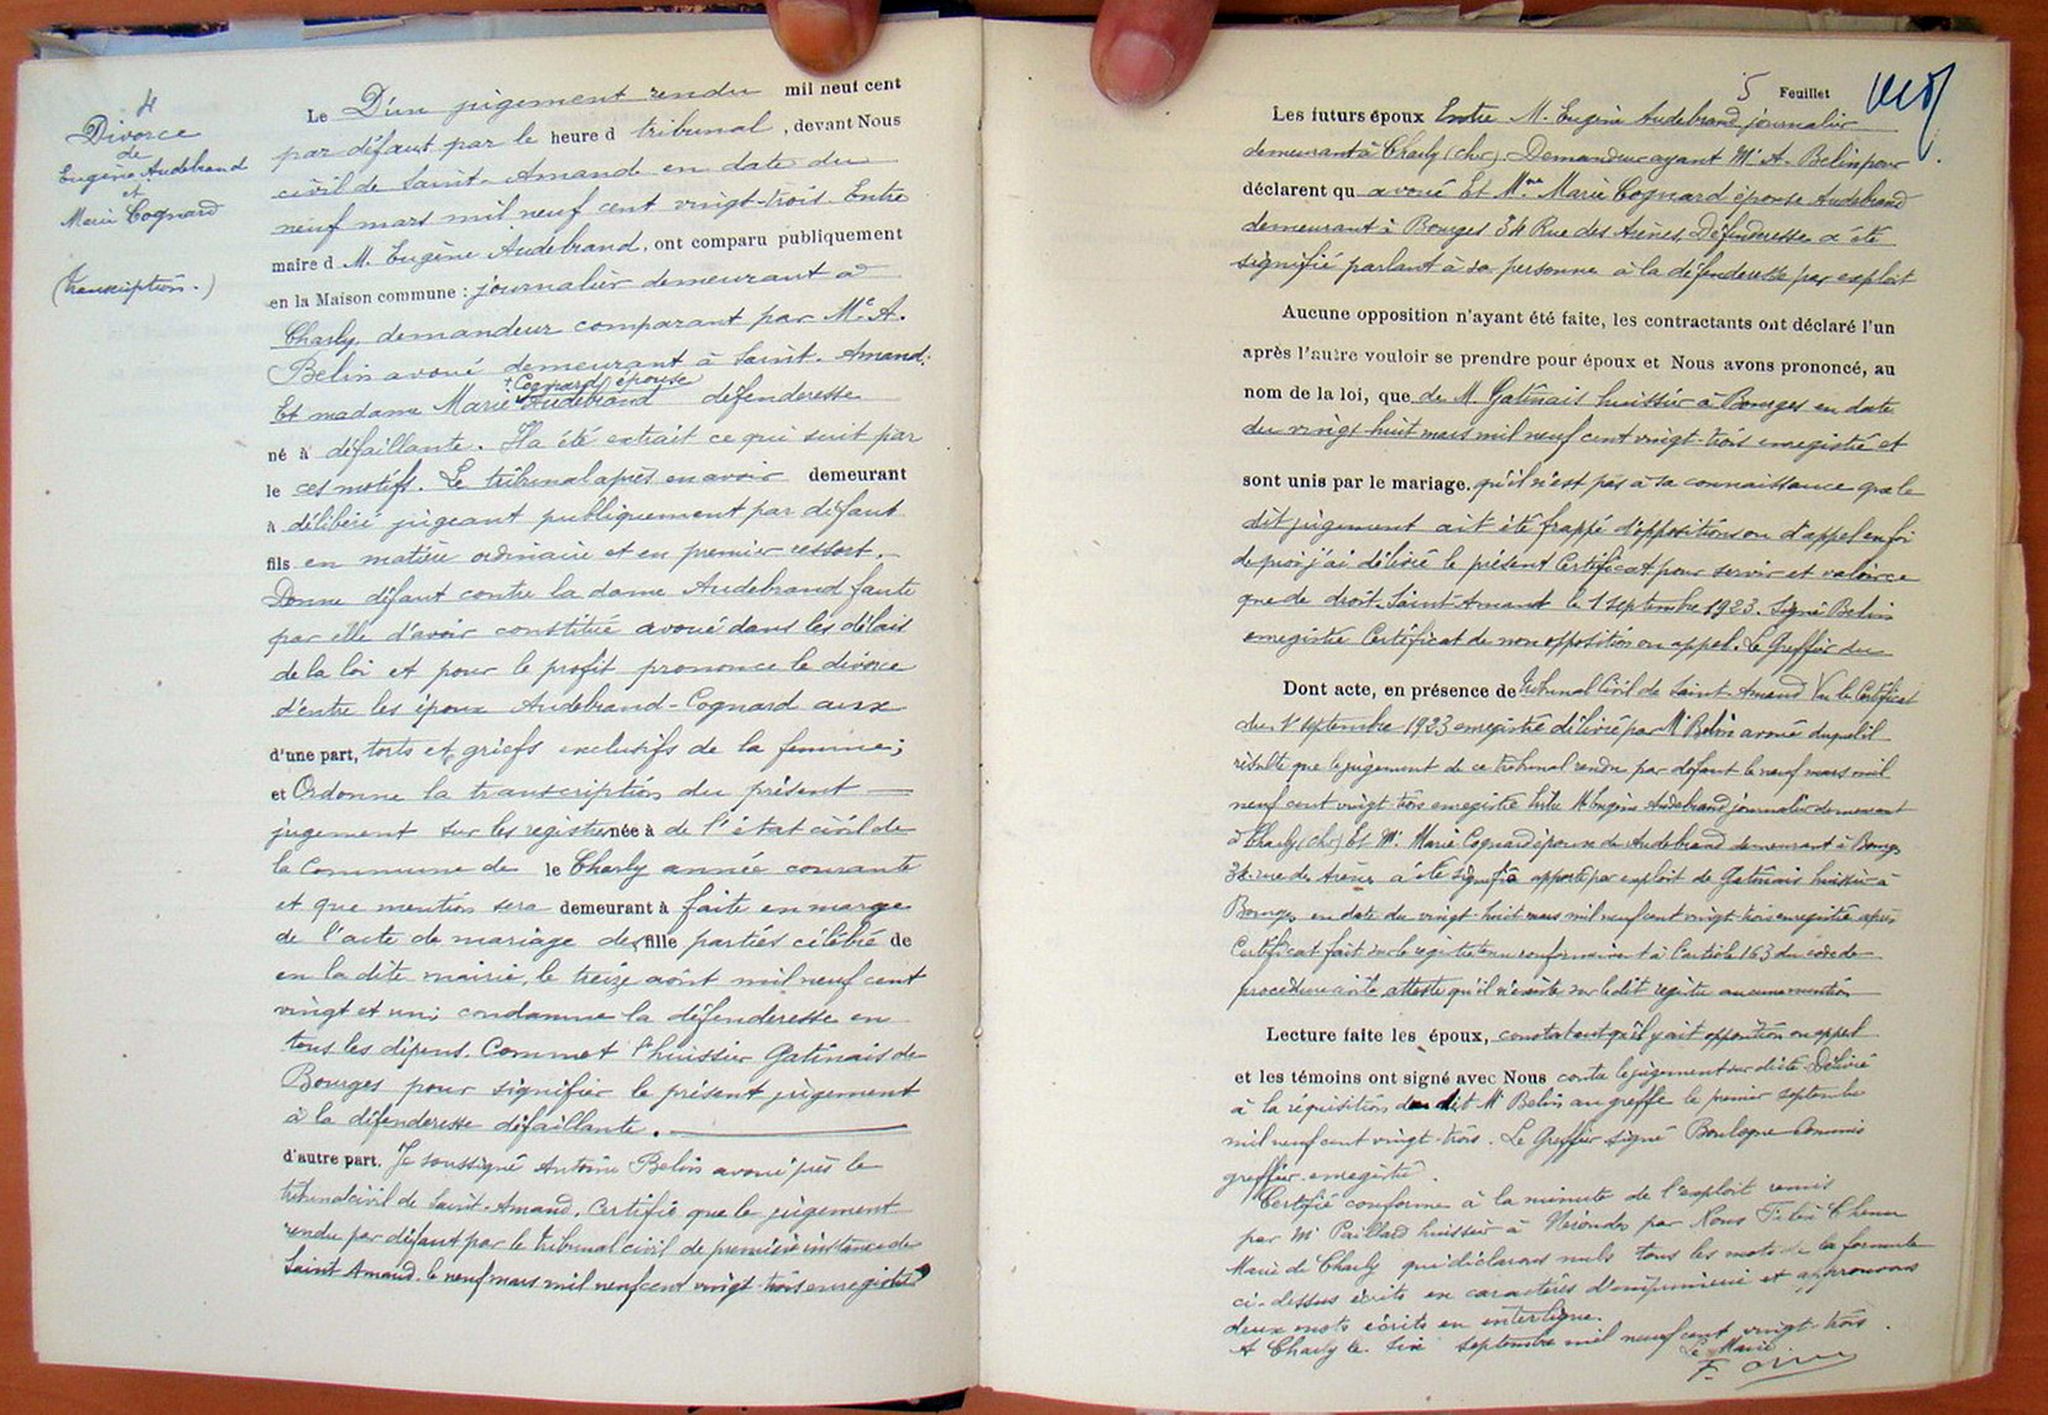 4
Divorce
de
Eugène Audebrand
et
Marie Cognard
(transcription.)
Le D'un jugement rendu mil neuf cent
par défaut par le heure d tribunal, devant Nous
civil de Saint-Amand en date du
neuf mars mil neuf cent vingt-trois. Entre
maire d M. Eugène Audebrand, ont comparu publiquement
en la Maison commune : journalier demeurant à
Charly, demandeur comparant par Me A.
Belin avoué demeurant à Saint-Amand.
+ Cognard épouse
Et madame Marie Audebrand défenderesse
né à défaillante. Il a été extrait ce qui suit par
le ces motifs. Le tribunal après en avoir demeurant
à délibéré jugeant publiquement par défaut
fils en matière ordinaire et en premier ressort.
Donne défaut contre la dame Audebrand faute
par elle d'avoir constitué avoué dans les délais
de la loi et pour le profit prononce le divorce
d'entre les époux Audebrand-Cognard aux
d'une part, torts et griefs exclusifs de la femme;
et Ordonne la transcription du présent
jugement sur les registres née à de l'état civil de
la Commune de le Charly année courante
et que mention sera demeurant à faite en marge
de l'acte de mariage des fille parties célébré de
en la dite mairie, le treize août mil neuf cent
vingt et un; condamne la défenderesse en
tous les dépens. Commet l'huissier Gatinais de
Bourges pour signifier le présent jugement
à la défenderesse défaillante.
d'autre part. Je soussigné Antoine Belin avoué près le
tribunal civil de Saint-Amand. Certifie que le jugement
rendu par défaut par le tribunal civil de première instance de
Saint Amand. le neuf mars mil neuf cent vingt-trois enregistré
5 Feuillet
Les futurs époux Entre M. Eugène Audebrand journalier
demeurant à Charly (cher). Demandeur ayant Me A. Belin pour
déclarent qu avoué Et Mme Marie Cognard épouse Audebrand
demeurant à Bourges 34 Rue des Arènes, Défenderesse a été
signifié parlant à sa personne à la défenderesse par exploit
Aucune opposition n'ayant été faite, les contractants ont déclaré l'un
après l'autre vouloir se prendre pour époux et Nous avons prononcé, au
nom de la loi, que de M. Gatinais huissier à Bourges en date
du vingt huit mars mil neuf cent vingt-trois enregistré et
sont unis par le mariage. qu'il n'est pas à sa connaissance que le
dit jugement ait été frappé d'opposition ou d'appel en foi
de quoi j'ai délivré le présent Certificat pour servir et valoir ce
que de droit. Saint-Amand le 1 septembre 1923. Signé Belin
enregistré Certificat de non opposition ou appel. Le Greffier du
Dont acte, en présence de Tribunal Civil de Saint-Amand Vu le Certificat
du 1er septembre 1923 enregistré délivré par Me Belin avoué duquel il
résulte que le jugement de ce tribunal rendu par défaut le neuf mars mil
neuf cent vingt-trois enregistré Entre M. Eugène Audebrand journalier demeurant
à Charly (cher) Et Me Marie Cognard épouse de Audebrand demeurant à Bourges
34 rue des Arènes a été signifié par exploit de Gatinais huissier à
Bourges en date du vingt-huit mars mil neuf cent vingt-trois enregistré après
Certificat fait sur le registre tenu conformément à l'article 163 du code de
procédure civile atteste qu'il n'existe sur le dit registre aucune mention
Lecture faite les époux, constatant qu'il y ait opposition ou appel
et les témoins ont signé avec Nous contre le jugement sur dicté. Délivré
à la réquisition du dit Me Belin au greffe le premier septembre
mil neuf cent vingt-trois. Le Greffier signé Boulogne Commis
greffier enregistré.
Certifié conforme à la minute de l'exploit remis
par Me Paillard huissier à Nérondes par Nous
Maire de Charly qui déclarons nuls tous les mots de la formule
ci-dessus écrits en caractères d'imprimerie et approuvons
deux mots écrits en interligne.
A Charly le six septembre mil neuf cent vingt-trois.
Le Maire